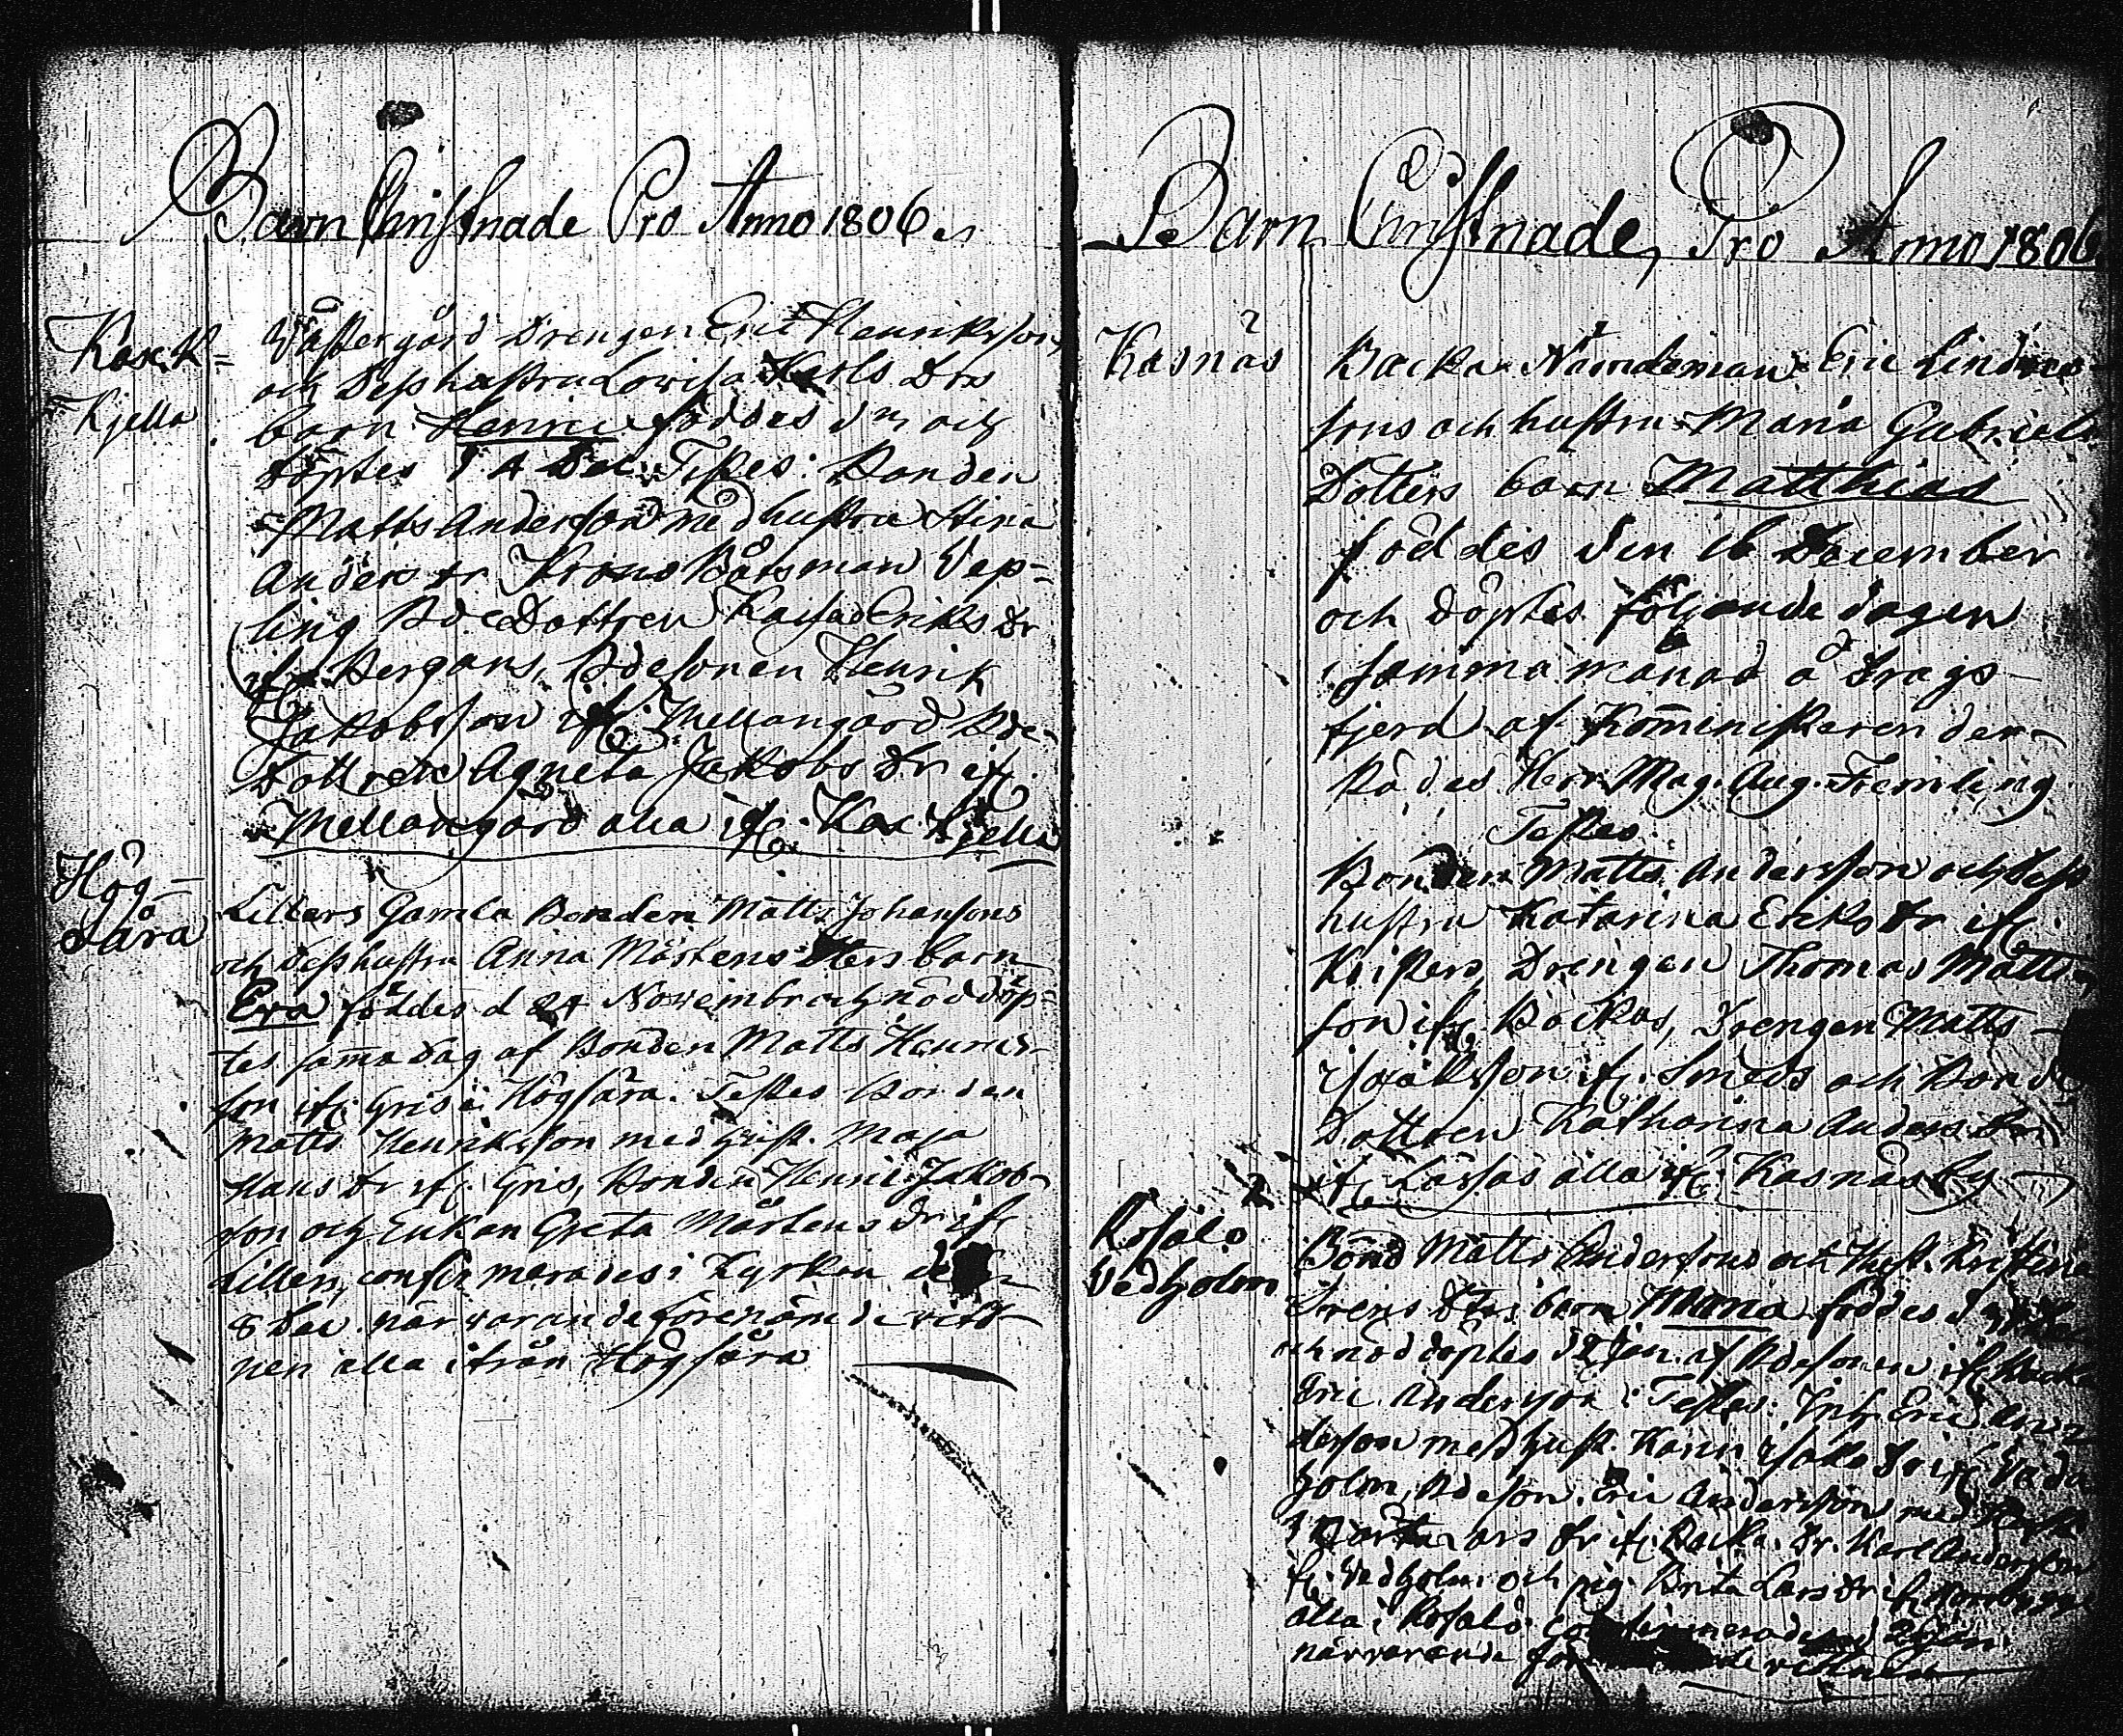 Barn Christnade Pro Anno 1806.
Kasck-
Kjella
Wästergård Drengen Eric Henriksons
och Desshustru Lovisa Karls Drs
barn Henric föddes d och
döptes d 4 Dec. Testes: Bonden
Matts Anderson med hustru Stina
Anders dr Krono Båtsman Vap-
ling Bde Dottren Kaisa Eriks dr
ifr. Bergans, Bdesonen Henrik
Jakobsson ifr. Mellangård Bde-
Dottren Agneta Jakobs dr ifr.
Mellangård alla ifr. Kas. Kjella
Hög-
Såra
Lillars Gamla Bonden Matts Johansons
och desshustru Anna Mårtens Dters barn
Eva föddes d 24 Novembr och nöddöp-
tes samma dag af Bonden Matts Henrics-
son ifr. Gris i Högsåra. Testes Bonden
Matts Henriksson med hust. Maja
Hans dr ifr. Gris, Bonden Henric Jakob-
son och Enkan Greta Mårtens dr ifr
Lillars, confirmerades i Kyrkan
8 Dec. närvarande förenämde vitt-
nen alla ifrån Högsåra
Barn Christnade, Pro Anno 1806
Kasnäs
Backa Nämdeman Eric Lindroos-
sons och hustru Maria Gabriels
Dotters barn Matthias
föddes den 16 December
och döptes följande dagen
i samma månad å Drags-
fjerd af Kom̄inisteren der-
städes Herr Mag. Aug. Fremling
Testes.
Bonden Matts Andersson och dess
hustru Katarina Ericks dr ifr.
Krispers, Drengen Thomas Matts-
son ifr. Backas, Drengen Matts
Isaäksson ifr. Smeds och Bonde
Dottren Katharina Anders Dr
ifr. Lassas alla ifr. Kasnäs by
Rosalo
Vedholm
Bond Matts Andersons och Hust. Kristina
Drs barn Maria föddes d
och nöddöptes d 2 Jan. af Bdesonen ifr. Backa
Eric Andersson. Testes: Inh. Eric An-
dersson med hust. Karin Isaks dr ifr Veda
holm, Bdeson. Eric Andersson med
Lars dr ifr. Backa. Dr. Karl Anderson
ifr. Vedholm och pig. Brita Lars dr ifr Norrbygge
alla i Rosalö. Confirmerades d Jan.
närvarande vittnen